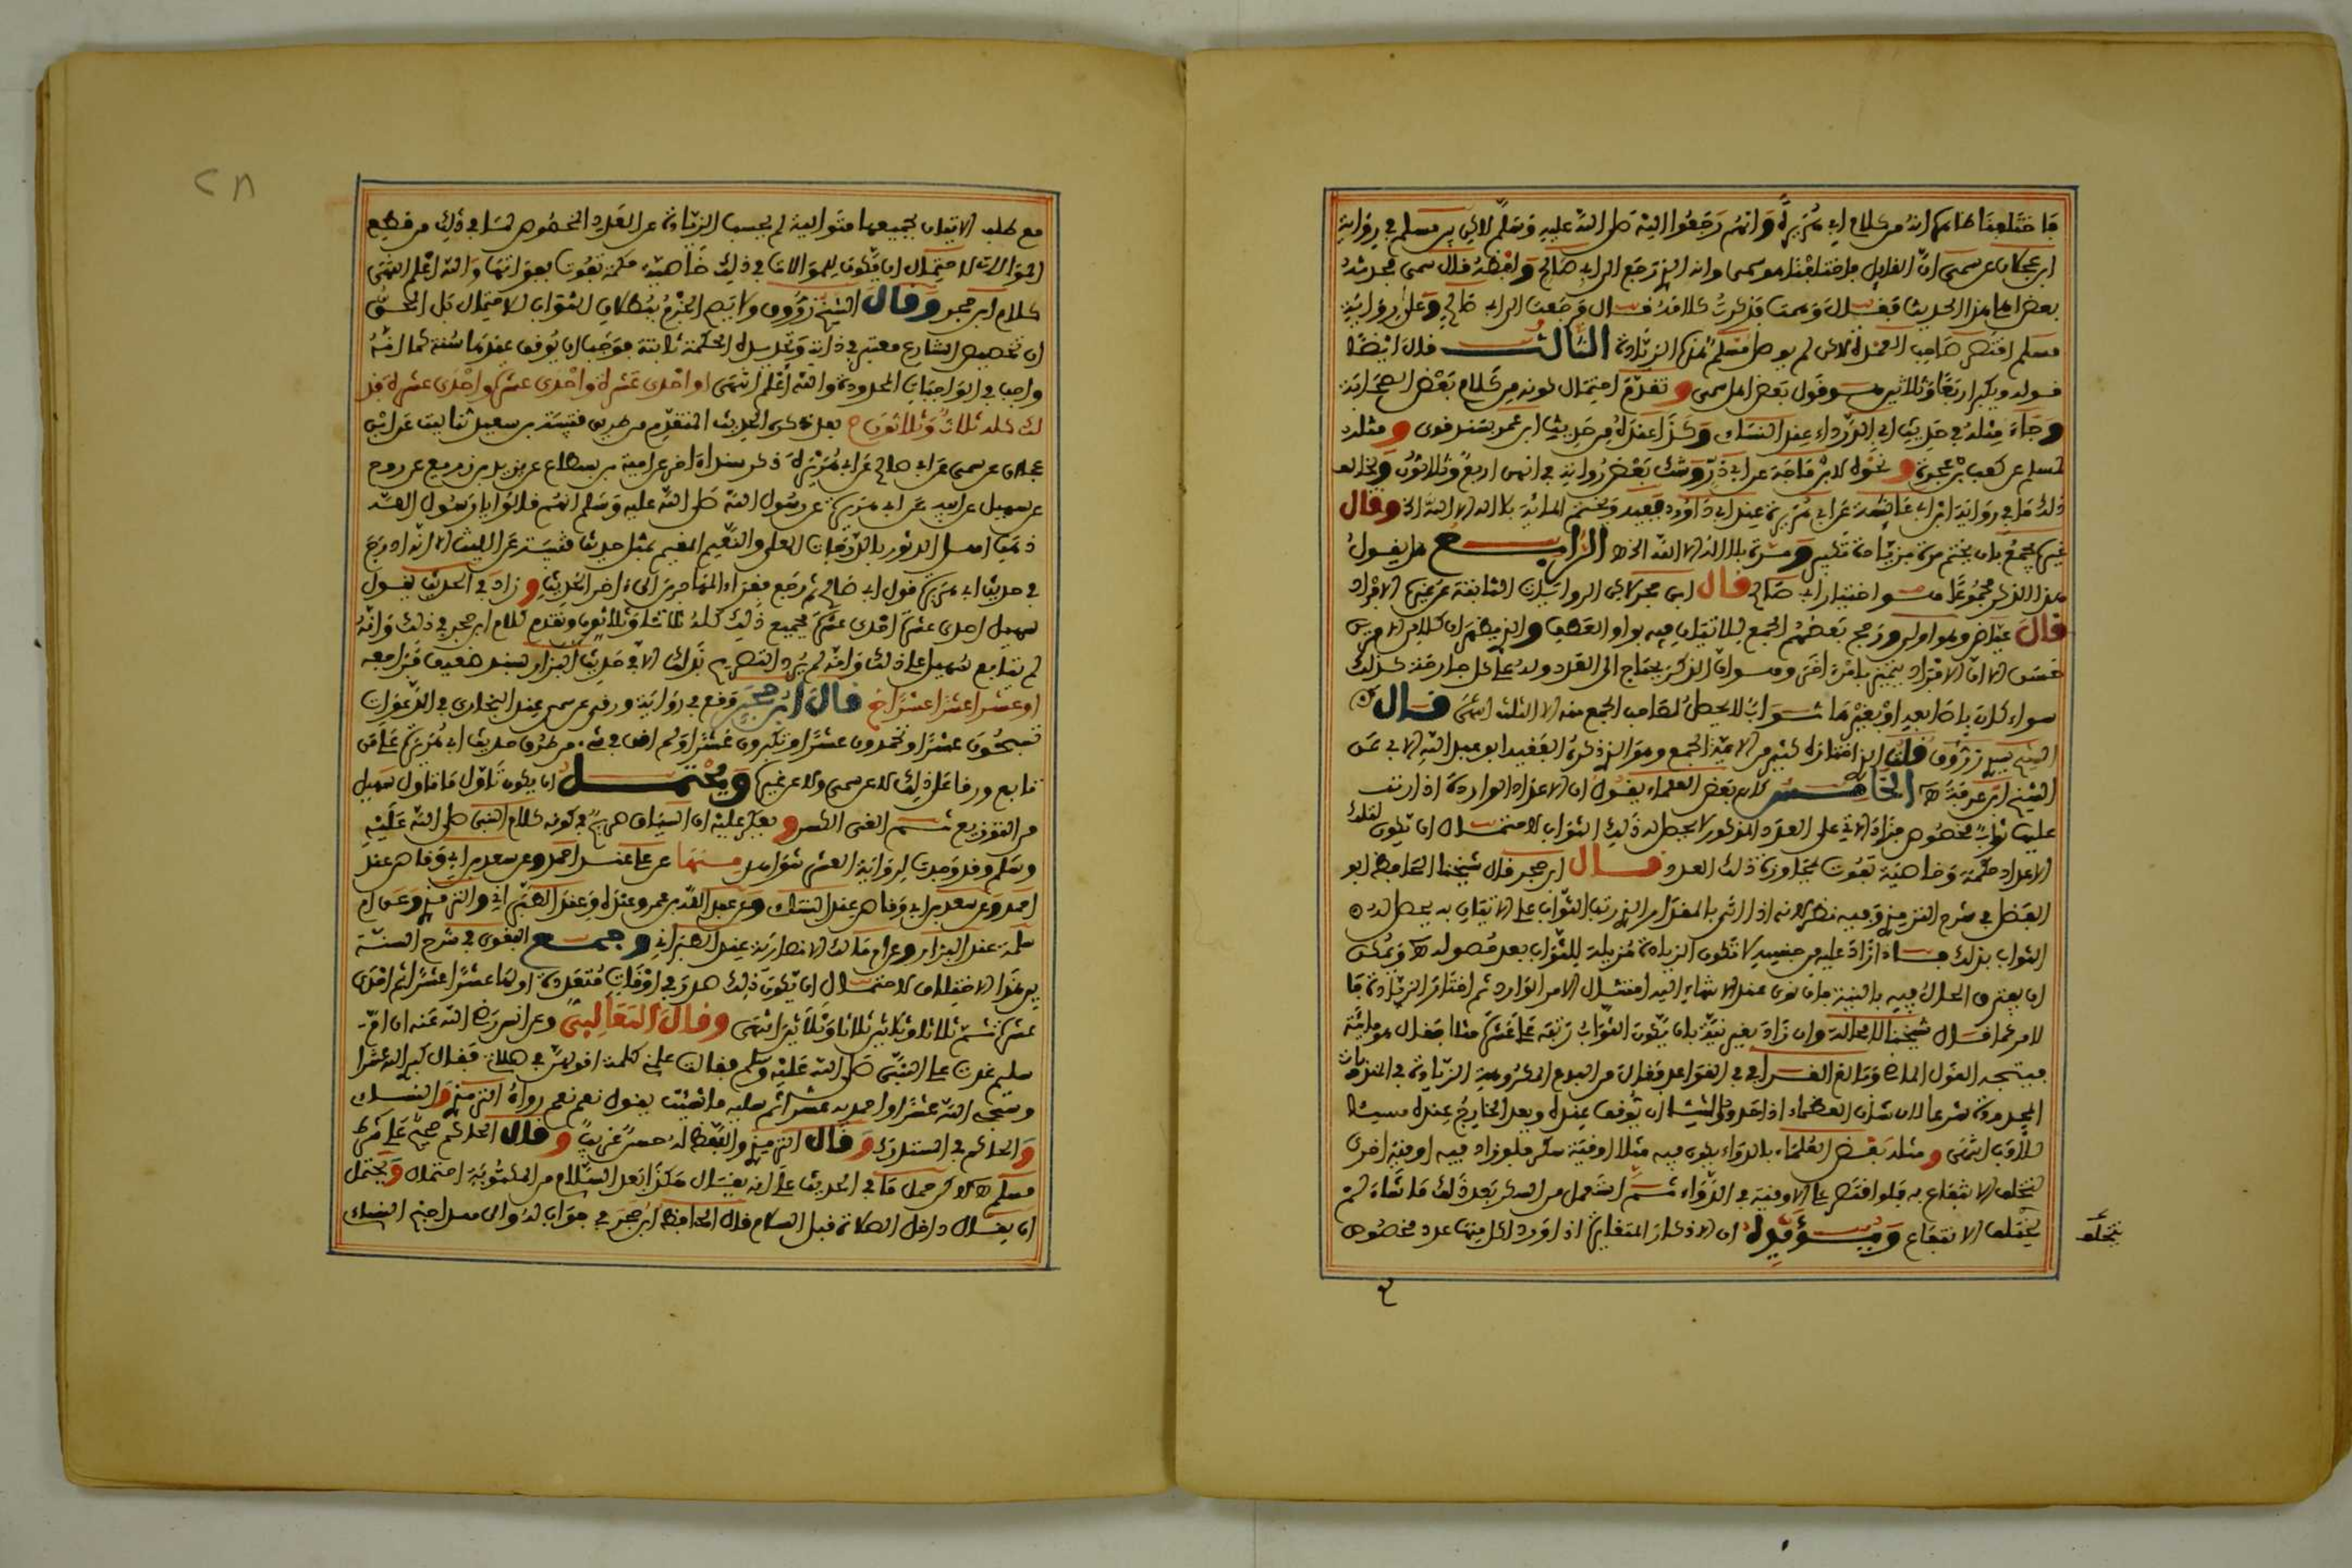 فاختلفنا ظاهره انه من كلام ابي هريرة وانهم رجعوا اليه صلى الله عليه وسلم لاكن بين مسلم في رواية
ابن عجلان عن سمي ان القايل فاختلفنا هو سمي وانه الذي رجع الى ابي صالح ولفظه قال سمي فحدثت
بعض اهلي هذا الحديث فقال وهمت فذكرت كلامه قال فرجعت الى ابي صالح وعلى رواية
مسلم اقتصر صاحب العمدة لاكن لم يوصل مسلم هذه الزيادة الثالث قال ايضا
قوله ويكبر اربعا وثلاثين هو قول بعض اهل سمي وتقدم احتمال كونه من كلام بعض الصحابة
وجاء مثله في حديث ابي الدرداء عند النساي وكذا عنده من حديث ابن عمر بسند قوي ومثله
لمسلم عن كعب بن عجرة ونحوه لابن ماجة عن ابي ذر وشك بعض رواته في انهن اربع وثلاثون ويخالف
ذلك ما في رواية ابن ابي عائشة عن ابي هريرة عند ابي داوود ففيه ويختم المائة بلا اله الا الله الخ وقال
غيره يجمع بان يختم مرة بزيادة تكبيرة ومرة بلا اله الا الله الخ الرابع هل يقول
هذا الذكر مجموعا هو اختيار ابي صالح قال ابن حجر لاكن الروايات الثابتة عن غيره الافراد
قال عياض وهو اولى ورجح بعضهم الجمع للاتيان فيه بواو العطف والذي يظهر ان كلا من الامرين
حسن الا ان الافراد يتميز بامر اخر وهو ان الذاكر يحتاج الى العدد وله على كل حركة كذلك
سواء كان باصابعه او بغيرها ثواب لا يحصل لصاحب الجمع منه الا الثلث انتهى قال
الشيخ سيدي زروق قلت الذي اختاره كثير من الائمة الجمع وهو الذي ذكره الفقيه ابو عبد الله الابي عن
الشيخ ابن عرفة الخامس كان بعض العلماء يقول ان الاعداد الواردة اذا رتب
عليها ثواب مخصوص فزاد الاتي على العدد المذكور لا يحصل له ذلك الثواب لاحتمال ان يكون لتلك
الاعداد حكمة وخاصية تفوت بمجاوزة ذلك العدد قال ابن حجر قال شيخنا الحافظ ابو
الفضل في شرح الترمذي وفيه نظر لانه اذا اتى بالمقدار الذي رتب الثواب على الاتيان به يحصل له
الثواب بذلك فاذا زاد عليه من جنسه لا تكون الزيادة مزيلة للثواب بعد حصوله ويمكن
ان يفترق الحال فيه بالنية فان نوى عند الانتهاء اليه امتثال الامر الوارد ثم اختار الزيادة فا
لامر كما قال شيخنا لا محالة وان زاد بغير نية بان يكون الثواب رتبه على عشرة مثلا فقال هو ماية
فيتجه القول الماضي وبالغ القرافي في القواعد فقال من البدع المكروهة الزيادة في المندوبات
المحدودة شرعا لان شأن العظماء اذا حدوا شيئا ان يوقف عنده ويعد الخارج عنده مسيئا
للادب انتهى ومثله بعض العلماء بالدواء يكون فيه مثلا اوقية سكر فلو زاد فيه اوقية اخرى
لتخلف الانتفاع به فلو اقتصر على الاوقية في الدواء ثم استعمل من السكر بعد ذلك ما شاء لم
يتخلف الانتفاع ويؤيده ان الاذكار المتغايرة اذا ورد لكل منها عدد مخصوص
مع طلب الاتيان بجميعها متوالية لم يحسن الزيادة على العدد المخصوص لما في ذلك من قطع
الموالاة لاحتمال ان يكون للموالاة في ذلك خاصية حكمة تفوت بفواتها والله اعلم انتهى
كلام ابن حجر وقال الشيخ زروق ولا يصح الجزم ببطلان الثواب للاحتمال بل الحق
ان تخصيص الشارع معتبر في ذاته وتحديده لحكمة ثابتة فوجب ان يوقف عندما سنه كما انه
واجب في الواجبات المحدودة والله اعلم انتهى او احدى عشرة واحدى عشرة واحدى عشرة فذ
لك كله ثلاث وثلاثون م بعد ذكره الحديث المتقدم من طريق قتيبة بن سعيد ثنا ليث عن ابن
عجلان عن سمي عن ابي صالح عن ابي هريرة ذكر سندا اخر عن امية بن بسطام عن يزيد بن زريع عن روح
عن سهيل عن ابيه عن ابي هريرة عن رسول الله صلى الله عليه وسلم انهم قالوا يا رسول الله
ذهب اهل الدثور بالدرجات العلى والنعيم المقيم بمثل حديث قتيبة عن الليث الا انه ادرج
في حديث ابي هريرة قول ابي صالح ثم رجع فقراء المهاجرين الى ءاخر الحديث وزاد في الحديث يقول
سهيل احدى عشرة احدى عشرة فجميع ذلك كله ثلاثة وثلاثون وتقدم كلام ابن حجر في ذلك وانه
لم يتابع سهيل على ذلك وانه لم يرد التصريح بذلك الا في حديث البزار بسند ضعيف فراجعه
او عشرا عشرا عشرا خ قال ابن حجر وقع في رواية ورقي عن سمي عند البخاري في الدعوات
تسبحون عشرا وتحمدون عشرا وتكبرون عشرا ولم اقف في شيء من طرق حديث ابي هريرة على من
تابع ورقا على ذلك لا عن سمي ولا عن غيره ويحتمل ان يكون تأول ما تأول سهيل
من التوزيع ثم الغى الكسر ويعكر عليه ان السياق صريح في كونه كلام النبي صلى الله عليه
وسلم وقد وجدت لرواية العشر شواهد منها عن علي عند احمد وعن سعد بن ابي وقاص عند
احمد وعن سعد بن ابي وقاص عند النساي وعن عبد الله بن عمرو عنده وعند الطبراني والترمذي وعن ام
سلمة عند البزار وعن ام مالك الانصارية عند الطبراني وجمع البغوي في شرح السنة
بين هذا الاختلاف لاحتمال ان يكون ذلك صدر في اوقات متعددة اولها عشرا عشرا ثم احدى
عشرة ثم ثلاثا وثلاثين ثلاثا وثلاثين انتهى وقال الثعالبي وعن انس رضي الله عنه ان ام
سليم غدت على النبي صلى الله عليه وسلم فقالت علمني كلمات اقولهن في صلاتي فقال كبري الله عشرا
وسبحي الله عشرا واحمديه عشرا ثم سليه ما شئت يقول نعم نعم رواه الترمذي والنساي
والحاكم في المستدرك وقال الترمذي واللفظ له حسن غريب وقال الحاكم صحيح على شرط
مسلم لاكن حمل ما في الحديث على انه يقال هكذا بعد السلام من المكتوبة احتمال ويحتمل
ان يقال داخل الصلاة قبل السلام قال الحافظ ابن حجر في جواب له والى هذا جنح النساي